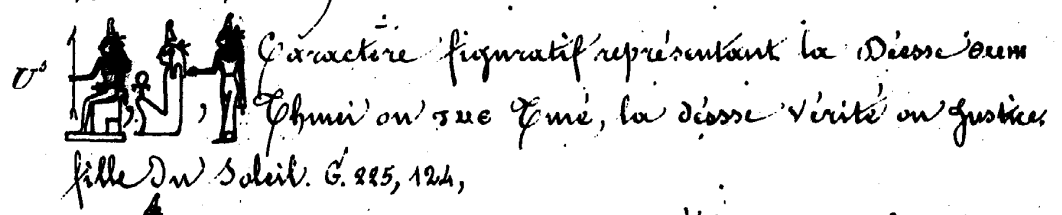 Caractère figuratif représentant la Déesse
Thmei ou ⲧⲙⲉ Tmé, la déesse Vérité ou Justice,
fille du Soleil. G. 225, 124,